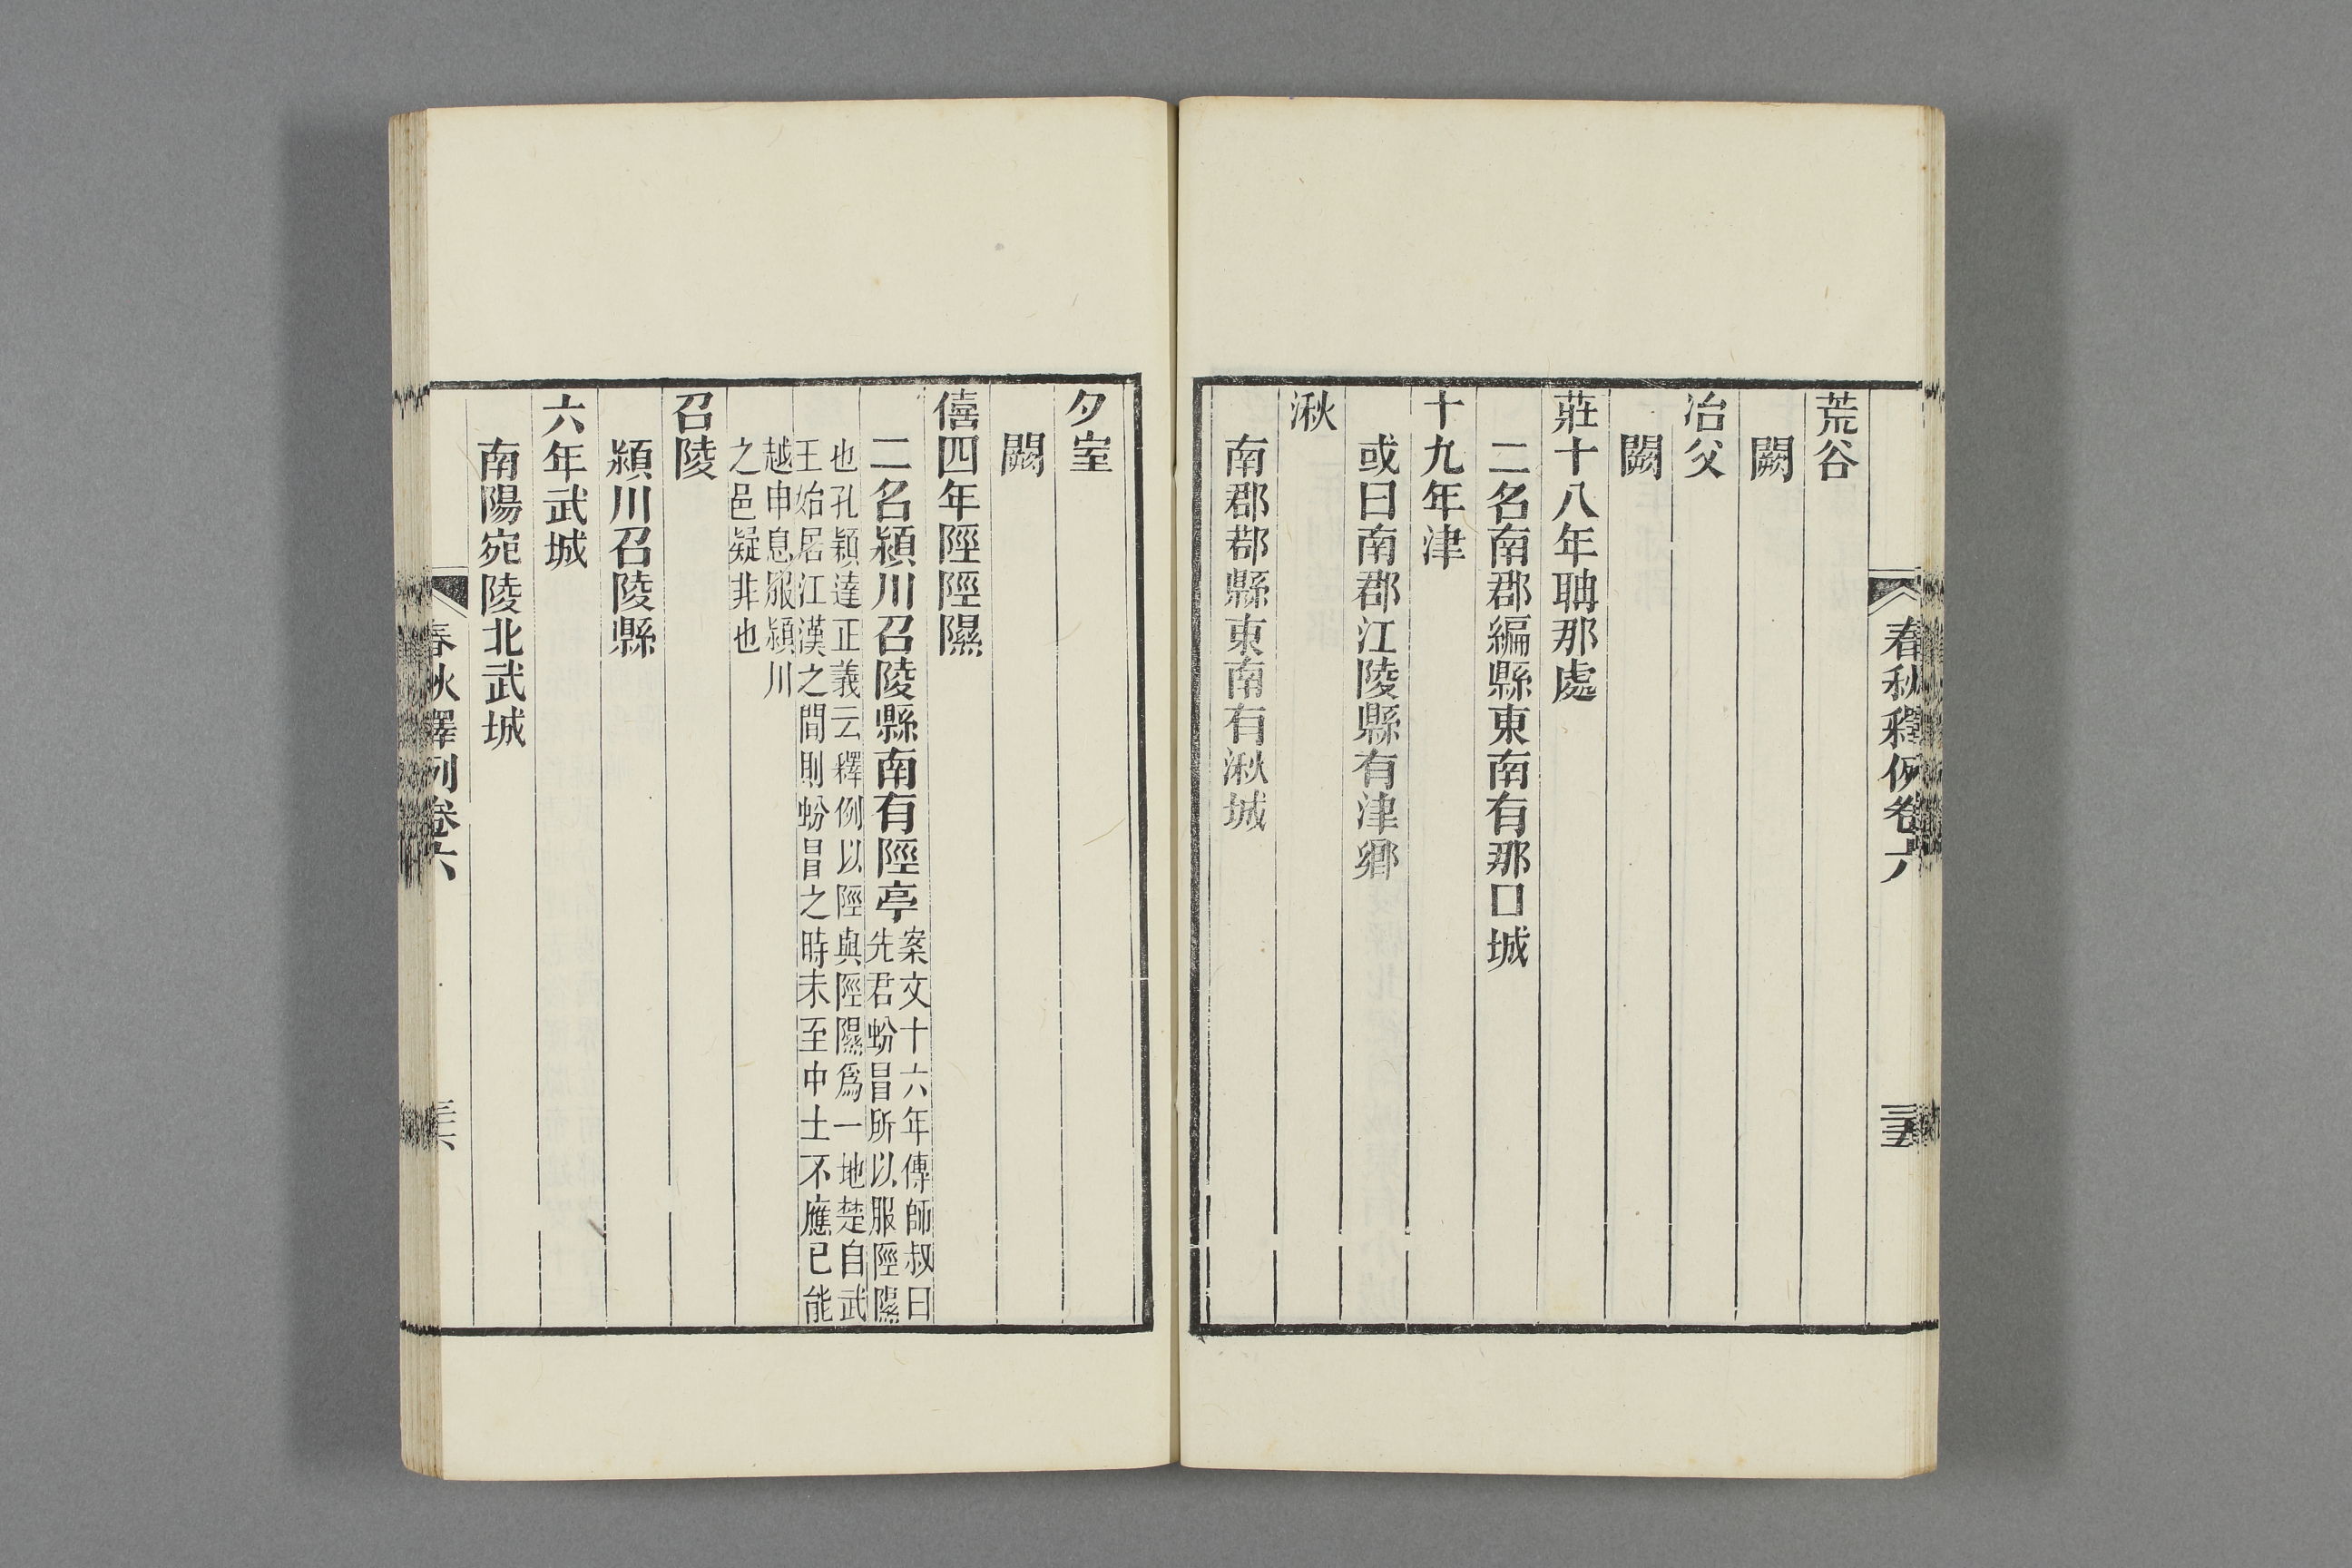 春秋釋例卷六
三五
荒谷
闕
冶父
闕
莊十八年聃那處
二名南郡編縣東南有那口城
十九年津
或曰南郡江陵縣有津鄉
湫
南郡鄀縣東南有湫城
夕室
闕
僖四年陘陘隰
二名潁川召陵縣南有陘亭案文十六年傳師叔曰
先君蚡冒所以服陘隰
也孔穎達正義云釋例以陘與陘隰爲一地楚自武
王始居江漢之間則蚡冒之時未至中土不應已能
越申息服潁川
之邑疑非也
召陵
潁川召陵縣
六年武城
南陽宛陵北武城
春秋釋例卷六